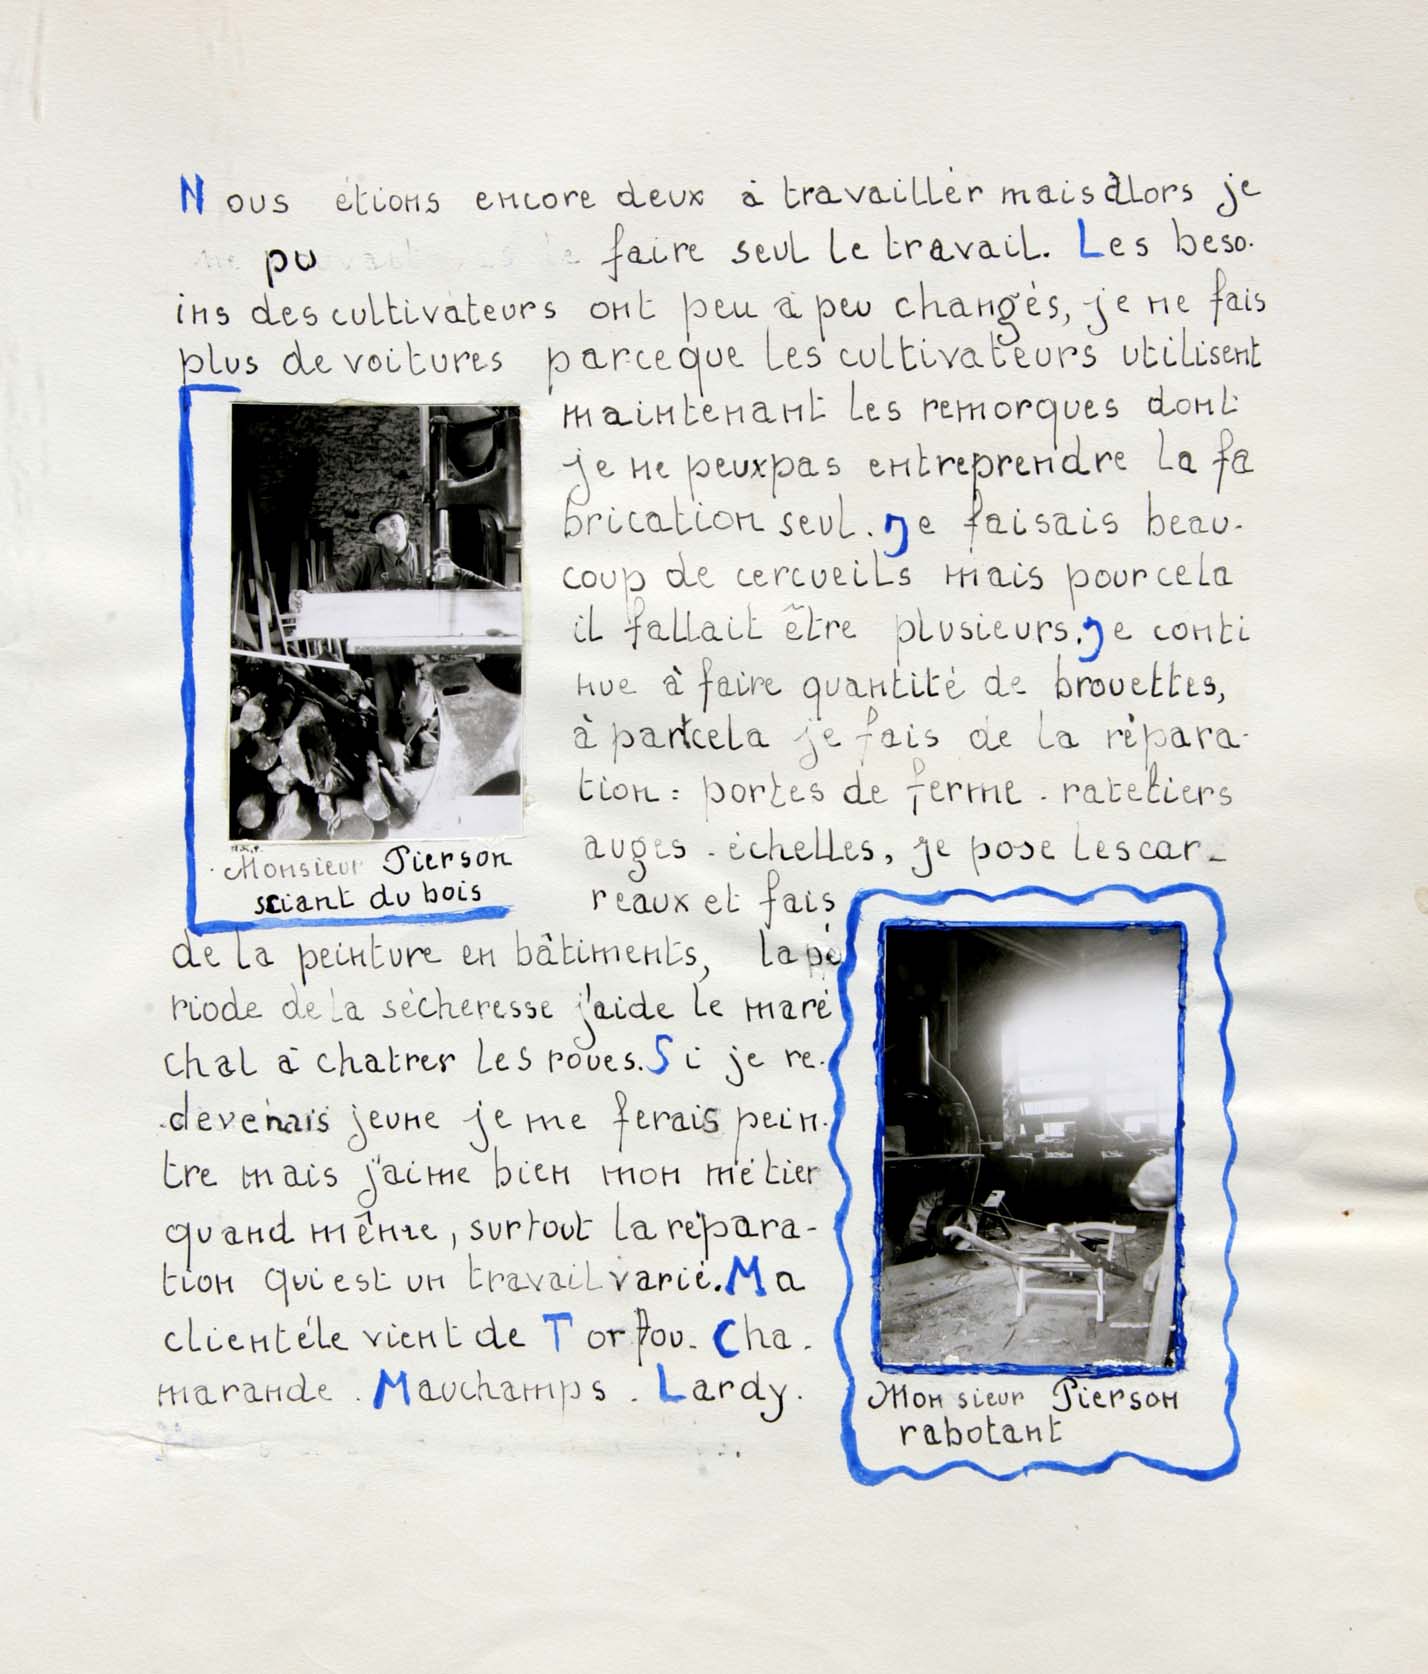 Nous étions encore deux à travaillér mais àlors je
pu faire seul le travail. Les beso-
ins des cultivateurs ont peu à peu changés, je ne fais
plus de voitures parceque les cultivateurs utilisent
maintenant les remorques dont
je ne peux pas entreprendre la fa
brication seul. Je faisais beau-
coup de cercueils mais pour cela
il fallait être plusieurs. Je conti
nue à faire quantité de brouettes,
à part cela je fais de la répara-
tion : portes de ferme - rateliers
auges - échelles, je pose les car-
reaux et fais
de la peinture en bâtiments, la pé
riode de la sécheresse j'aide le maré
chal à chatrer les roues. Si je re-
devenais jeune je me ferais pein-
tre mais j'aime bien mon métier
quand même, surtout la répara-
tion qui est un travail varié. Ma
clientéle vient de Torfou - Cha-
marande - Mauchamps - Lardy.
Monsieur Pierson
sciant du bois
Monsieur Pierson
rabotant